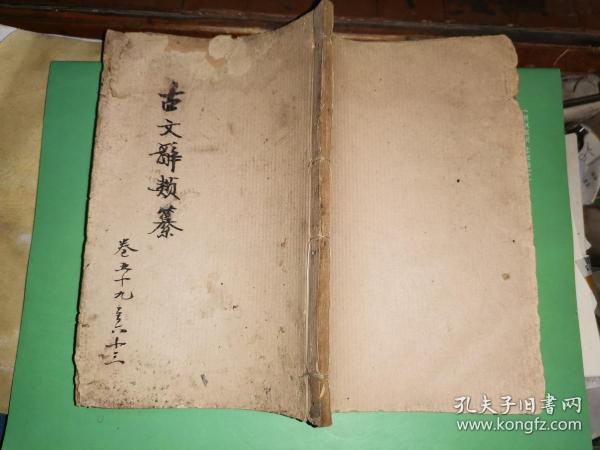 古文辭類纂
卷五十九至六十三
孔夫子旧书网
www.kongfz.com